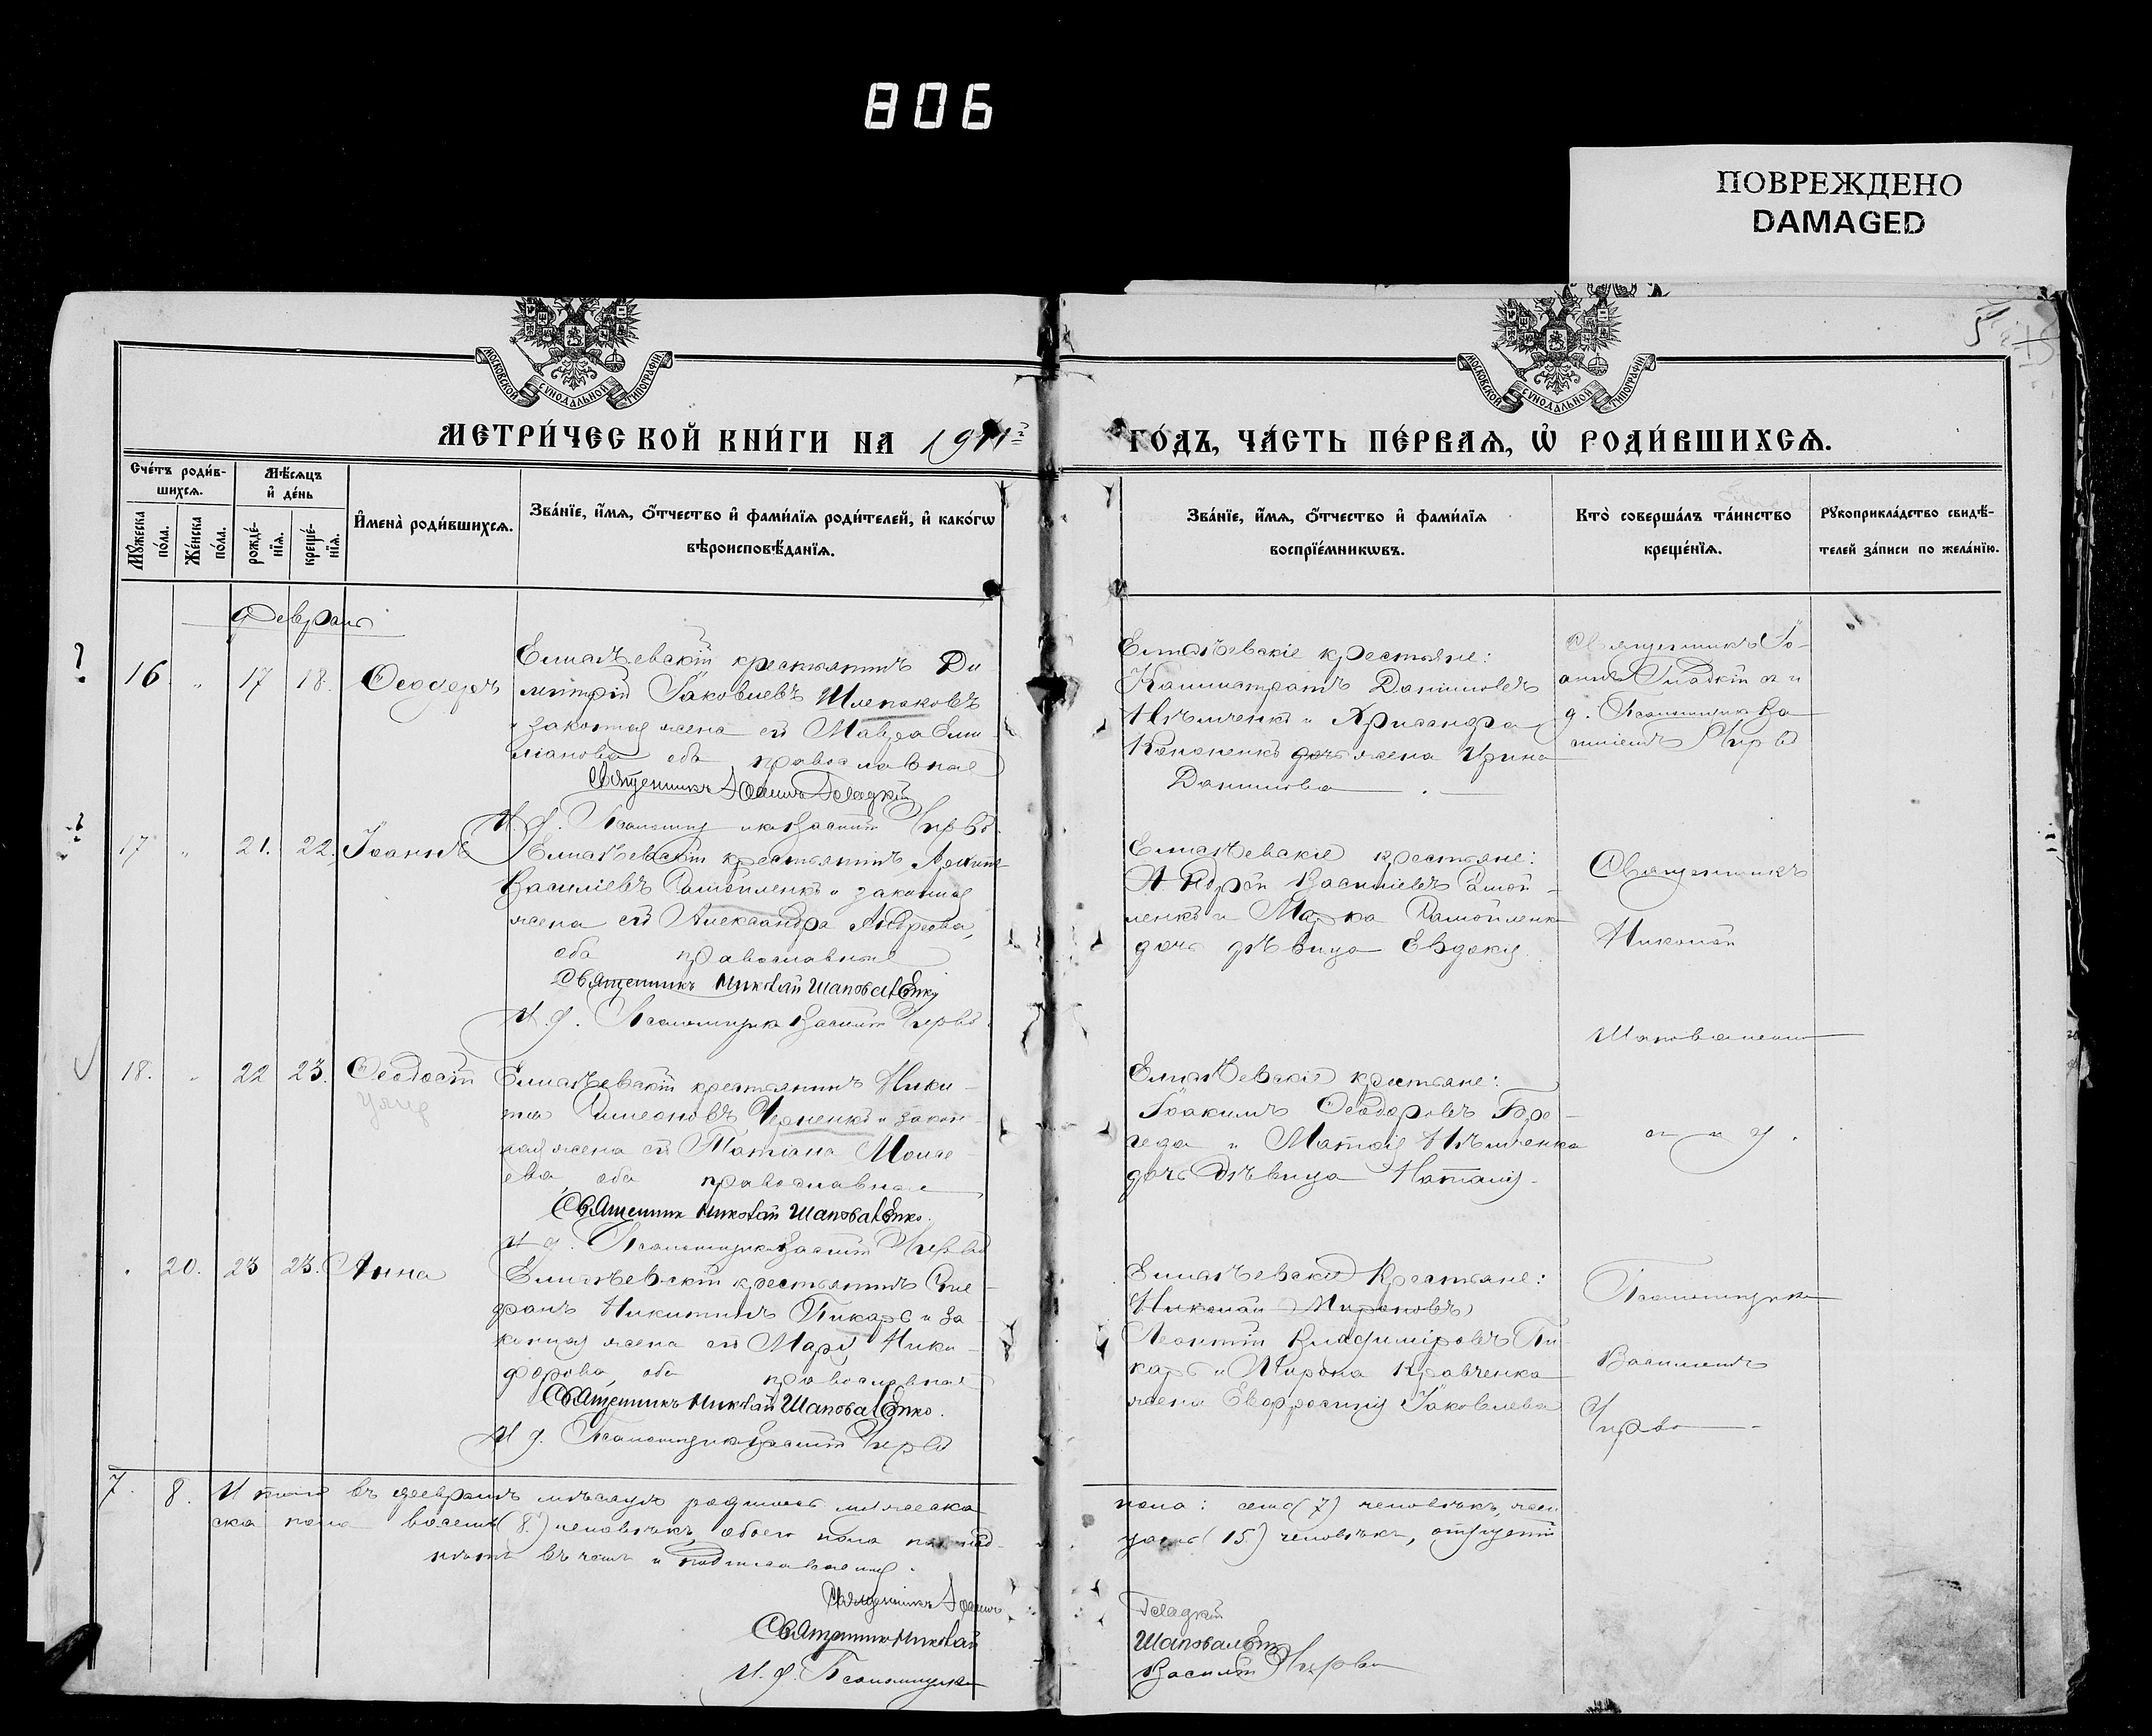 806
ПОВРЕЖДЕНО
DAMAGED
МОСКОВСКОЙ СУНОДАЛЬНОЙ ТИПОГРАФІИ
МОСКОВСКОЙ СУНОДАЛЬНОЙ ТИПОГРАФІИ
МЕТРИ́ЧЕСКОЙ КНИ́ГИ НА 1911
ГО́ДЪ, ЧА́СТЬ ПЕ́РВАЯ, Ѡ҆ РОДИ́ВШИХСЯ.
Сче́тъ роди́в-
шихся.
Мѣ́сяцъ
и҆ де́нь
Мꙋ́жеска
по́ла.
Же́нска
по́ла.
рожде́-
нїя.
креще́-
нїя.
И҆мена̀ роди́вшихся.
Зва́нїе, и҆́мя, ѻ҆́тчество и҆ фами́лїя роди́телей, и҆ како́гѡ
вѣроисповѣ́данїя.
Зва́нїе, и҆́мя, ѻ҆́тчество и҆ фами́лїя
воспрїе́мникѡвъ.
Кто̀ соверша́лъ та́инство
креще́нїя.
Рꙋкоприкла́дство свидѣ́-
телей за́писи по жела́нїю.
Февраль
16 " 17 18. Ѳеодоръ
Елисѣевскій крестьянинъ Ди
митрій Іаковлевъ Шлепаковъ
и законная жена его Мавра Еми
ліанова оба православные
Священникъ Іоаннъ Гладкій
И. д. Псаломщика Василій
Елисѣевскіе крестьяне:
Каллистратъ Данииловъ
Нѣмченко и Хрисандра
Кононенко дочь жена Ирина
Данилова
Священникъ Іо-
аннъ Гладкій и и
д. Псаломщика Ва
силіемъ
17 " 21. 22. Іоаннъ
Елисѣевскій крестьянинъ
Василіевъ Самойленко и законная
жена его Александра Андреева,
оба православные
Священникъ Николай Шаповаленко
И. д. Псаломщика Василій
Елисѣевскіе крестьяне:
Андрей Василіевъ Самой-
ленко и Марка Самойленка
дочь дѣвица Евдокія.
Священникъ
Николай
Шаповаленко
18. " 22 23. Ѳеодосій
Елисѣевскій крестьянинъ Ники-
та Симеоновъ Черненко и закон
ная жена его Татіана Моисе-
ева, оба православные
Священник Николай Шаповаленко.
И д. Псаломщика Василій
Елисѣевскіе крестьяне:
Іоакимъ Ѳеодоровъ
и Матѳія Нѣмченка
дочь дѣвица Наталія.
и д.
20. 23 23. Анна
Елисѣевскій крестьянинъ Сте-
фанъ Никитинъ Пикарь и за
конная жена его Марія Ники-
форова, оба православные
Священникъ Николай Шаповаленко.
И д. Псаломщика Василій
Елисѣевскіе крестьяне:
Николай Мироновъ
Леонтій Владиміровъ Пи
карь и Мирона Кравченка
жена Евфросинія Іаковлева
Псаломщика
Василіемъ
7. 8. Итого въ февралѣ мѣсяцѣ родилось мужеска
пола: семь (7) человѣкъ, жен
ска пола восемь (8.) человѣкъ, обоего пола пятнад-
цать (15.) человѣкъ,
въ чемъ и подписавшимъ.
Священникъ Іоаннъ
Гладкій
Священникъ Николай
Шаповаленко
И. д. Псаломщика
Василій